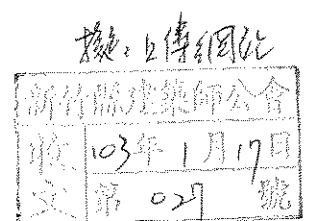 擬:上傳網站
新竹縣建築師公會
收文
103年1月17日
第027號